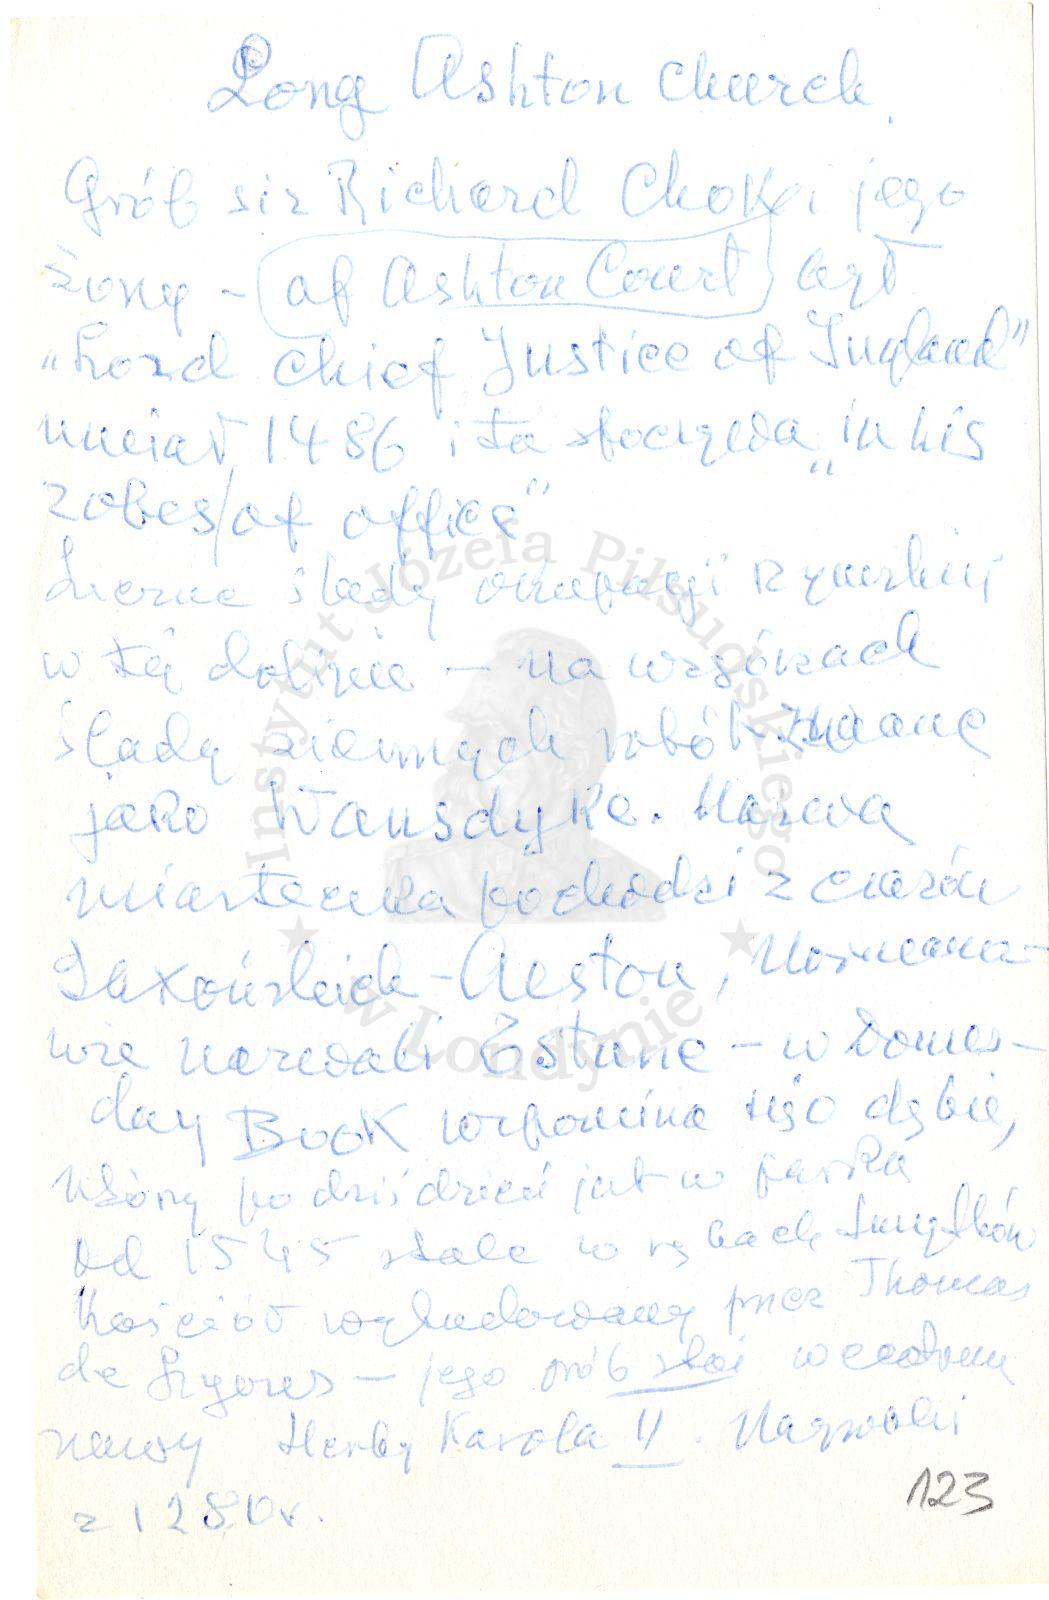 Long Ashton Church.
Grób sir Richard Choke i jego
żony - of Ashton Court był
"Lord Chief Justice of England"
umiał 1486 i tu spoczywa "in his
robes of office"
Liczne ślady okupacji rzymskiej
w tej dolinie - na wzgórzach
ślady ziemnych robót znane
jako Wansdyke. Nazwa
miasteczka pochodzi z czasów
Saxońskich - Aeston, Normano-
wie nazwali Estune - w Domes-
day Book wspomina się o dębie,
który po dziś dzień jest w parku
od 1545 stale w rękach Smythów
Kościół wybudowany przez Thomas
de Lyons - jego grób stoi w
nawy Herby Karola II. Nagrobki
z 1280 r.
123
Instytut Józefa Piłsudskiego
w Londynie